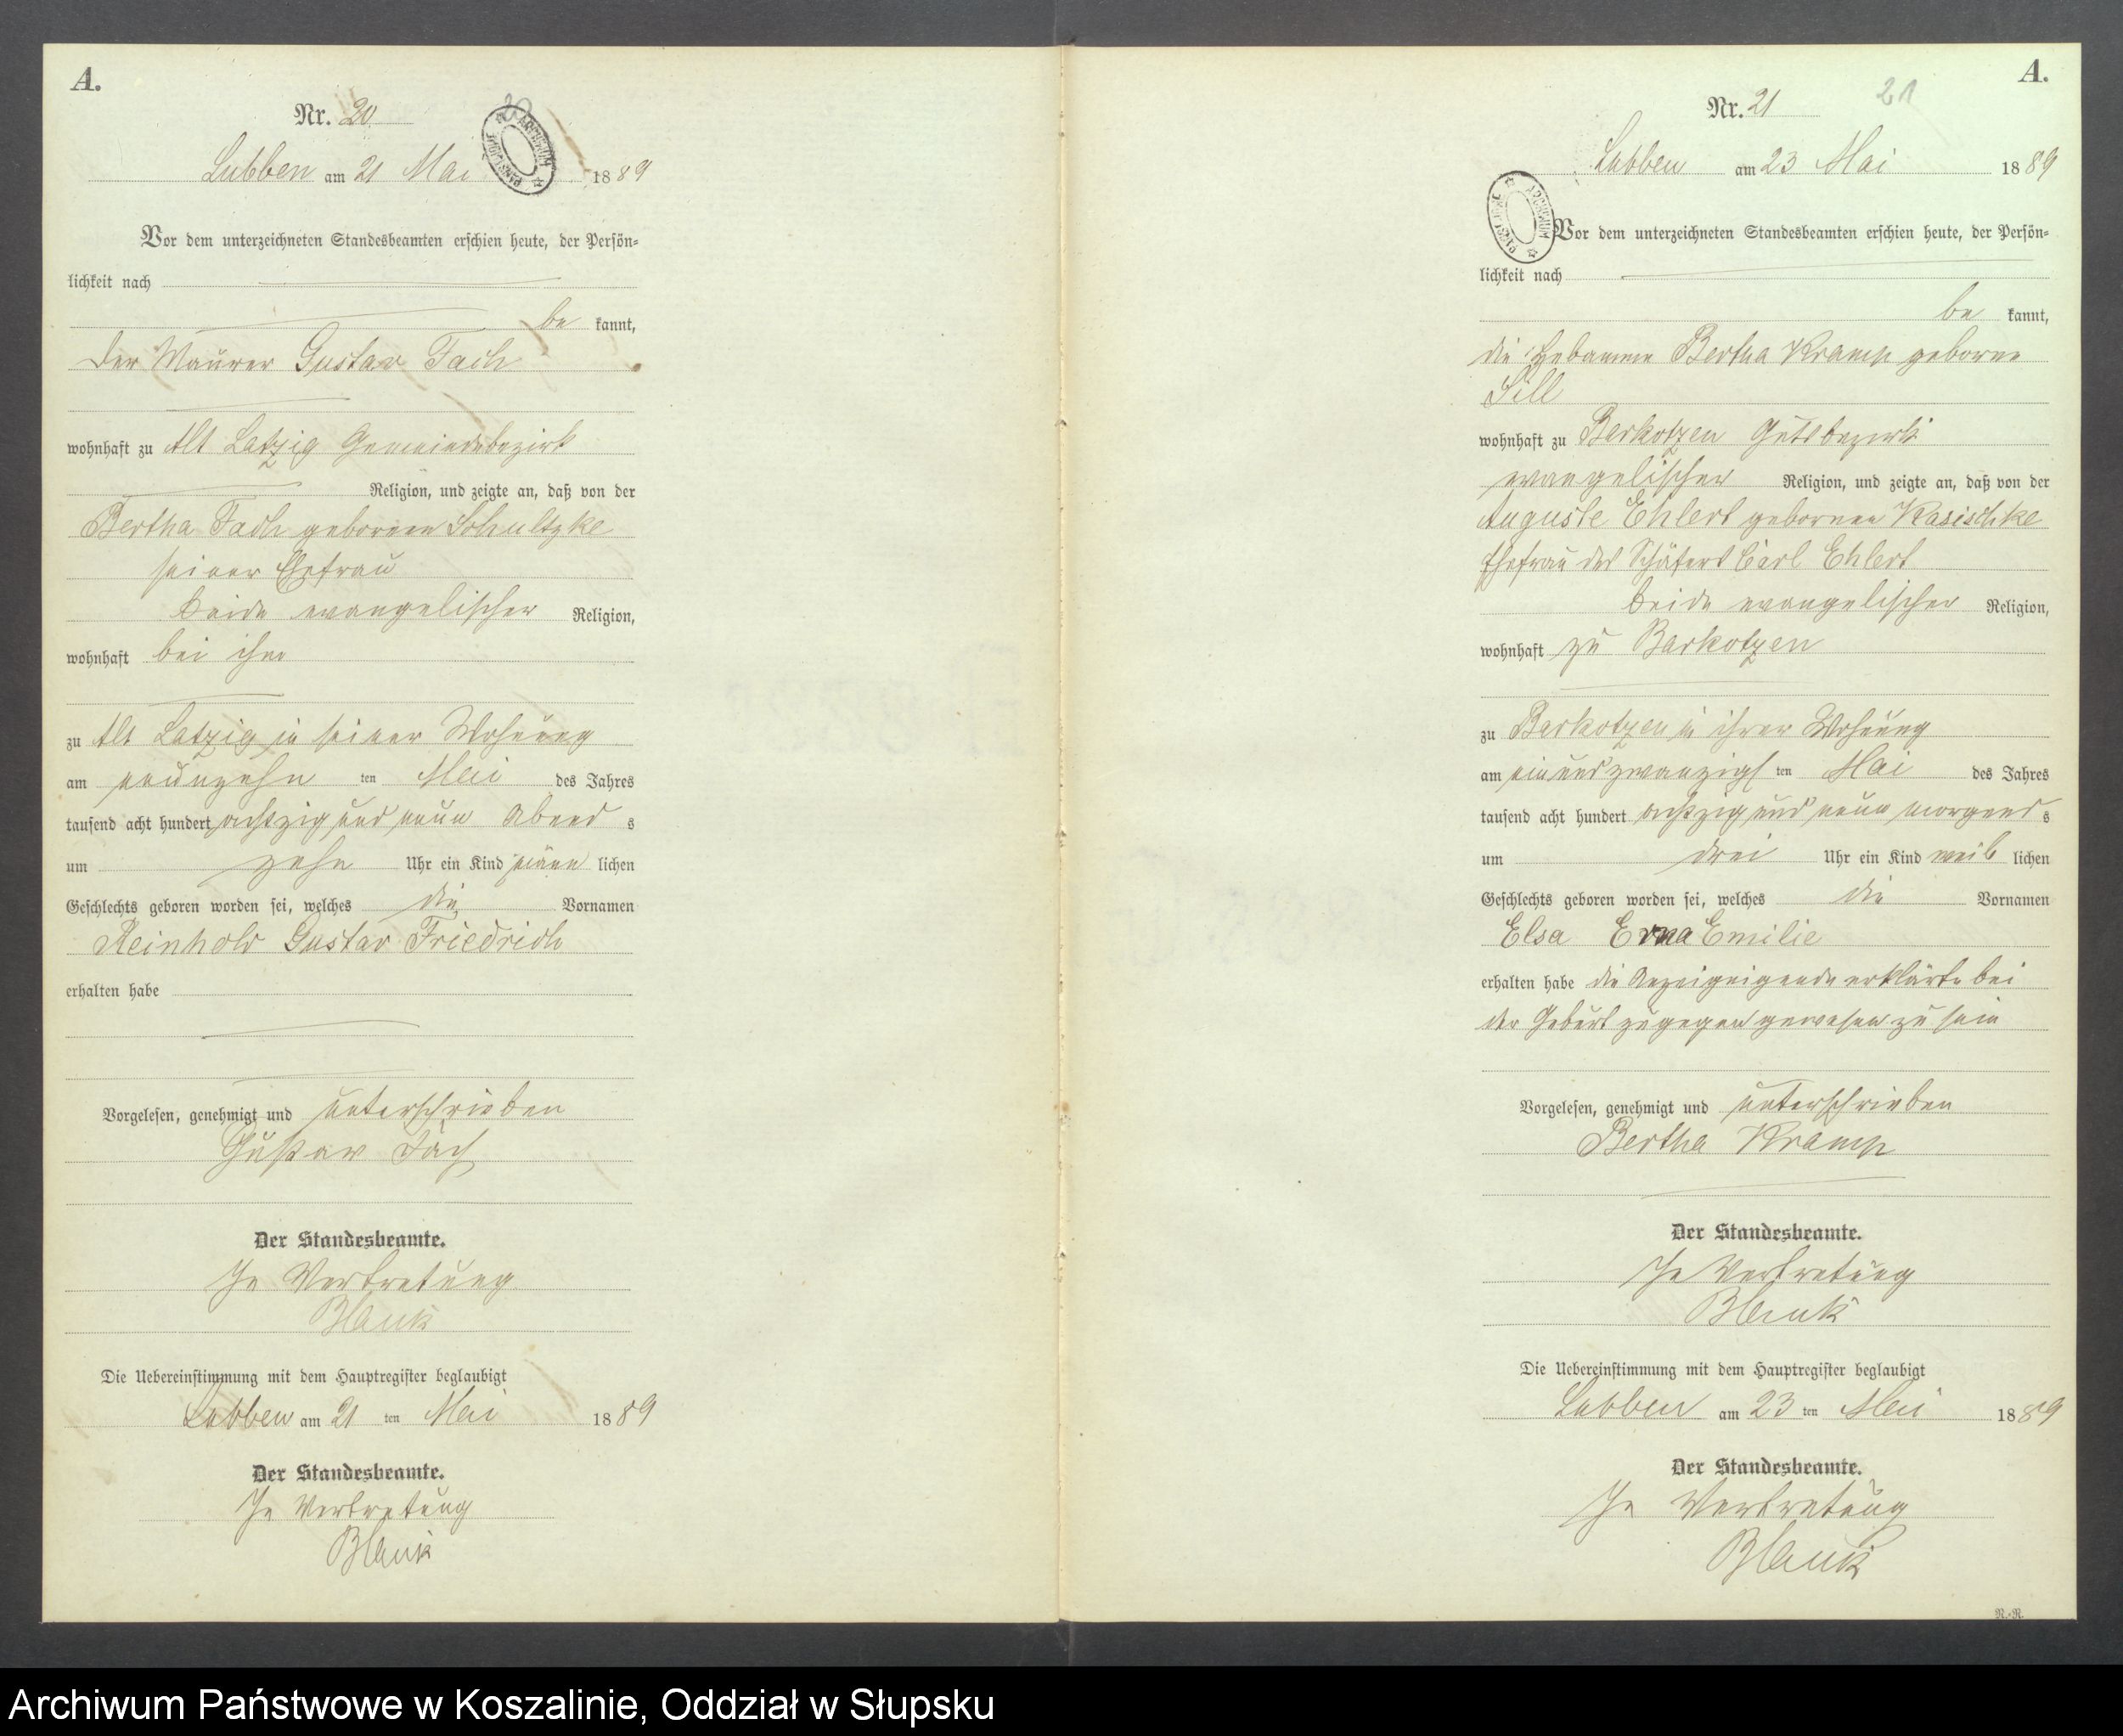 A.
Nr. 20
20
ARCHIWUM PAŃSTWOWE
Lubben am 21 Mai 1889
Vor dem unterzeichneten Standesbeamten erschien heute, der Persön-
lichkeit nach
be kannt,
der Maurer Gustav Fach
wohnhaft zu Alt Latzig Gemeindebezirk
Religion, und zeigte an, daß von der
Bertha Fach geborenen Schultzke
seiner Ehefrau
beide evangelischer Religion,
wohnhaft bei ihm
zu Alt Latzig in seiner Wohnung
am neunzehn ten Mai des Jahres
tausend acht hundert achtzig und neun Abend s
um zehn Uhr ein Kind männ lichen
Geschlechts geboren worden sei, welches die Vornamen
Reinhold Gustav Friedrich
erhalten habe
Vorgelesen, genehmigt und unterschrieben
Gustav Fach
Der Standesbeamte.
In Vertretung
Blank
Die Uebereinstimmung mit dem Hauptregister beglaubigt
Lubben am 21 ten Mai 1889
Der Standesbeamte.
In Vertretung
Blank
A.
21
Nr. 21
Lubben am 23 Mai 1889
ARCHIWUM PAŃSTWOWE
Vor dem unterzeichneten Standesbeamten erschien heute, der Persön-
lichkeit nach
be kannt,
die Hebamme Bertha Kramp geborne
Sill
wohnhaft zu Barkotzen Gutsbezirk
evangelischer Religion, und zeigte an, daß von der
Auguste Ehlert gebornen Kasischke
Ehefrau des Schäfers Carl Ehlert
beide evangelischer Religion,
wohnhaft zu Barkotzen
zu Barkotzen in ihrer Wohnung
am einundzwanzigs ten Mai des Jahres
tausend acht hundert achtzig und neun morgend s
um drei Uhr ein Kind weib lichen
Geschlechts geboren worden sei, welches die Vornamen
Elsa Erna Emilie
erhalten habe die Anzeigeigende erklärte bei
der Geburt zugegen gewesen zu sein
Vorgelesen, genehmigt und unterschrieben
Bertha Kramp
Der Standesbeamte.
In Vertretung
Blank
Die Uebereinstimmung mit dem Hauptregister beglaubigt
Lubben am 23 ten Mai 1889
Der Standesbeamte.
In Vertretung
Blank
N.-R.
Archiwum Państwowe w Koszalinie, Oddział w Słupsku